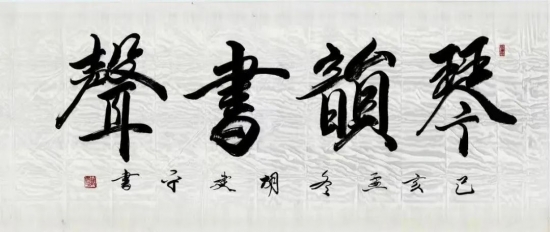 琴韻書聲
己亥孟冬胡平書